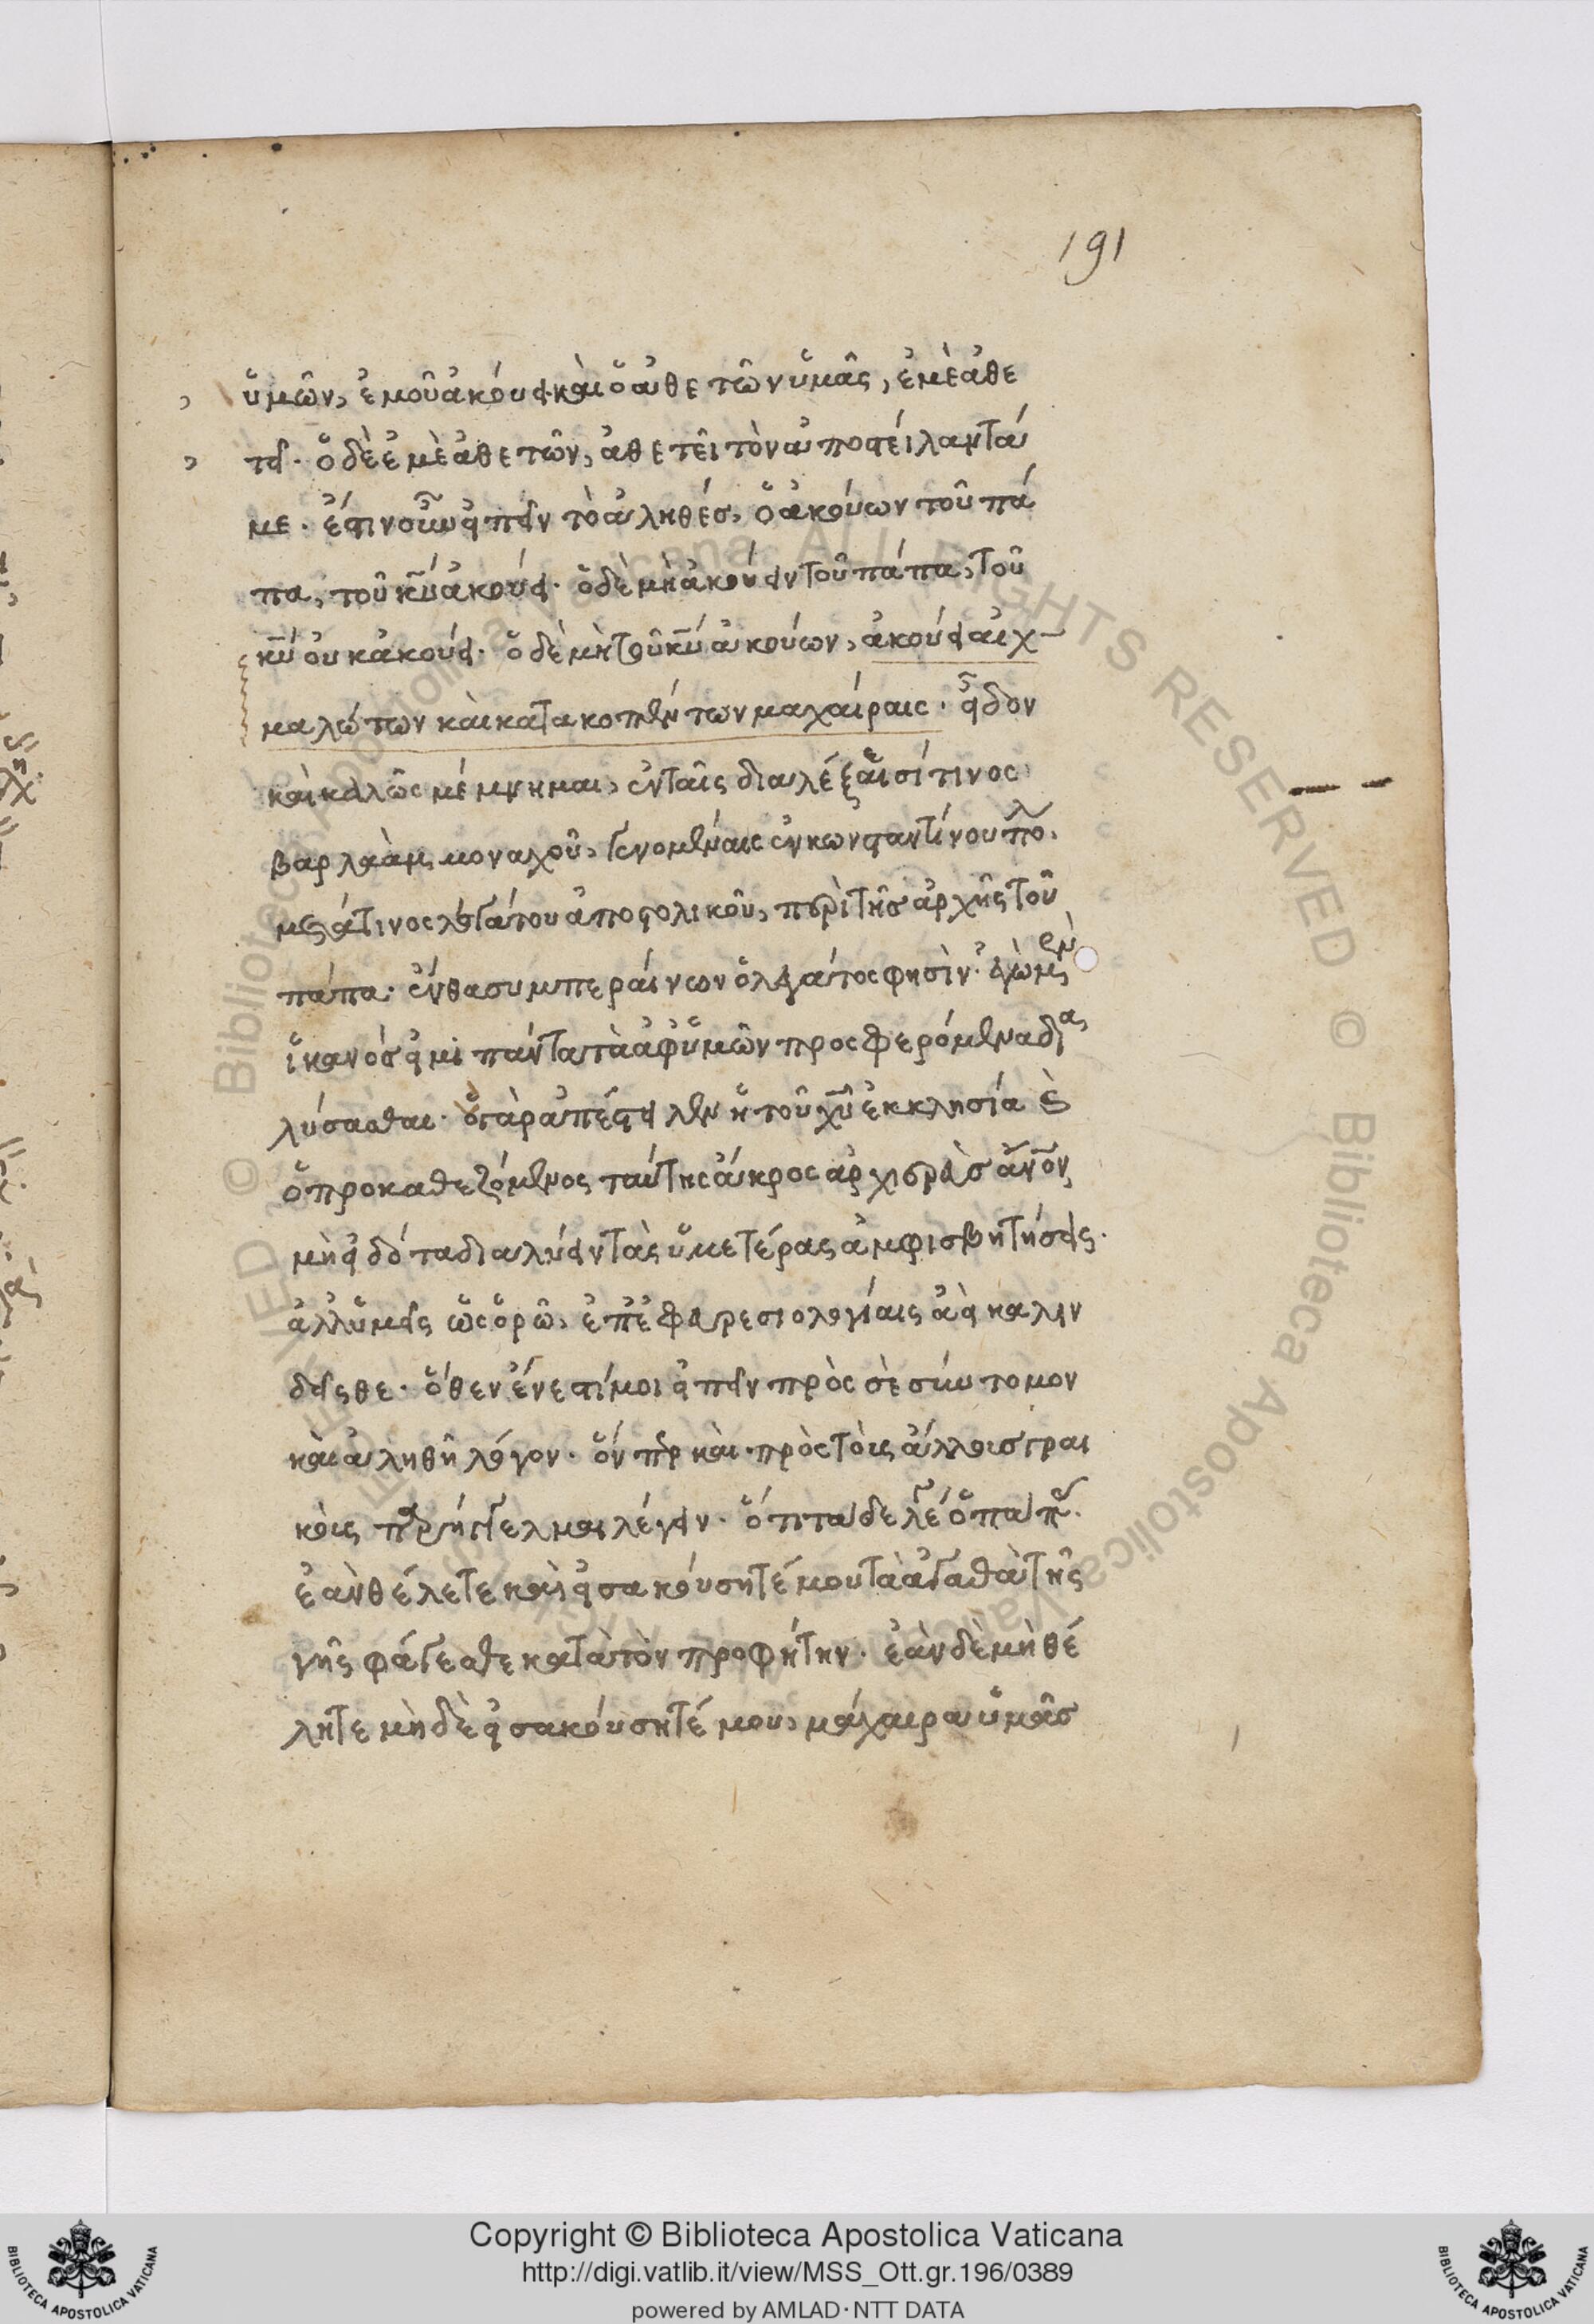 191
ὑμῶν, ἐμοῦ ἀκούει καὶ ὁ ἀθετῶν ὑμᾶς, ἐμὲ ἀθε
τεῖ. ὁ δὲ ἐμὲ ἀθετῶν, ἀθετεῖ τὸν ἀποστείλαντά
με. ἔστιν οὖν εἰπεῖν τὸ ἀληθές, ὁ ἀκούων τοῦ πά
πα, τοῦ κ̅υ̅ ἀκούει. ὁ δὲ μὴ ἀκούων τοῦ πάπα, τοῦ
κ̅υ̅ οὐκ ἀκούει. ὁ δὲ μὴ τοῦ κ̅υ̅ ἀκούων, ἀκούει αἰχ-
μαλώτων καὶ κατακοπέντων μαχαίραις. εἶδον
καὶ καλῶς μέμνημαι, ἐν ταῖς διαλέξεσί τινος
βαρλαὰμ μοναχοῦ, γενομέναις ἐν κωνσταντίνου πό.
μετά τινος λεγάτου ἀποστολικοῦ, περὶ τῆς ἀρχῆς τοῦ
πάπα. ἔνθα συμπεραίνων ὁ λεγάτος φησίν. ἐγὼ μὲν
ἱκανός εἰμι πάντα τὰ ἀφ' ὑμῶν προσφερόμενα δια
λύσασθαι. οὐ γὰρ ἀπέστειλεν ἡ τοῦ χ̅υ̅ ἐκκλησία καὶ
ὁ προκαθεζόμενος ταύτης ἄκρος ἀρχιερεὺς ἄν̅ον̅
μὴ εἰδότα διαλύειν τὰς ὑμετέρας ἀμφισβητήσεις.
ἀλλ' ὑμεῖς ὡς ὁρῶ, ἐπ' ἐφευρεσιολογίαις ἀεὶ καλιν
δεῖσθε. ὅθεν ἔνεστί μοι εἰπεῖν πρὸς σὲ σύντομον
καὶ ἀληθῆ λόγον. ὅν περ καὶ πρὸς τοὺς ἄλλους γραι
κοὺς παρήγγελμαι λέγειν. ὅτι τάδε λέγει ὁ πάπας.
ἐὰν θέλετε καὶ εἰσακούσητέ μου τὰ ἀγαθὰ τῆς
γῆς φάγεσθε κατὰ τὸν προφήτην. ἐὰν δὲ μὴ θέ
λητε μὴ δὲ εἰσακούσητέ μου, μάχαιρα ὑμᾶς
Copyright © Biblioteca Apostolica Vaticana
http://digi.vatlib.it/view/MSS_Ott.gr.196/0389
powered by AMLAD·NTT DATA